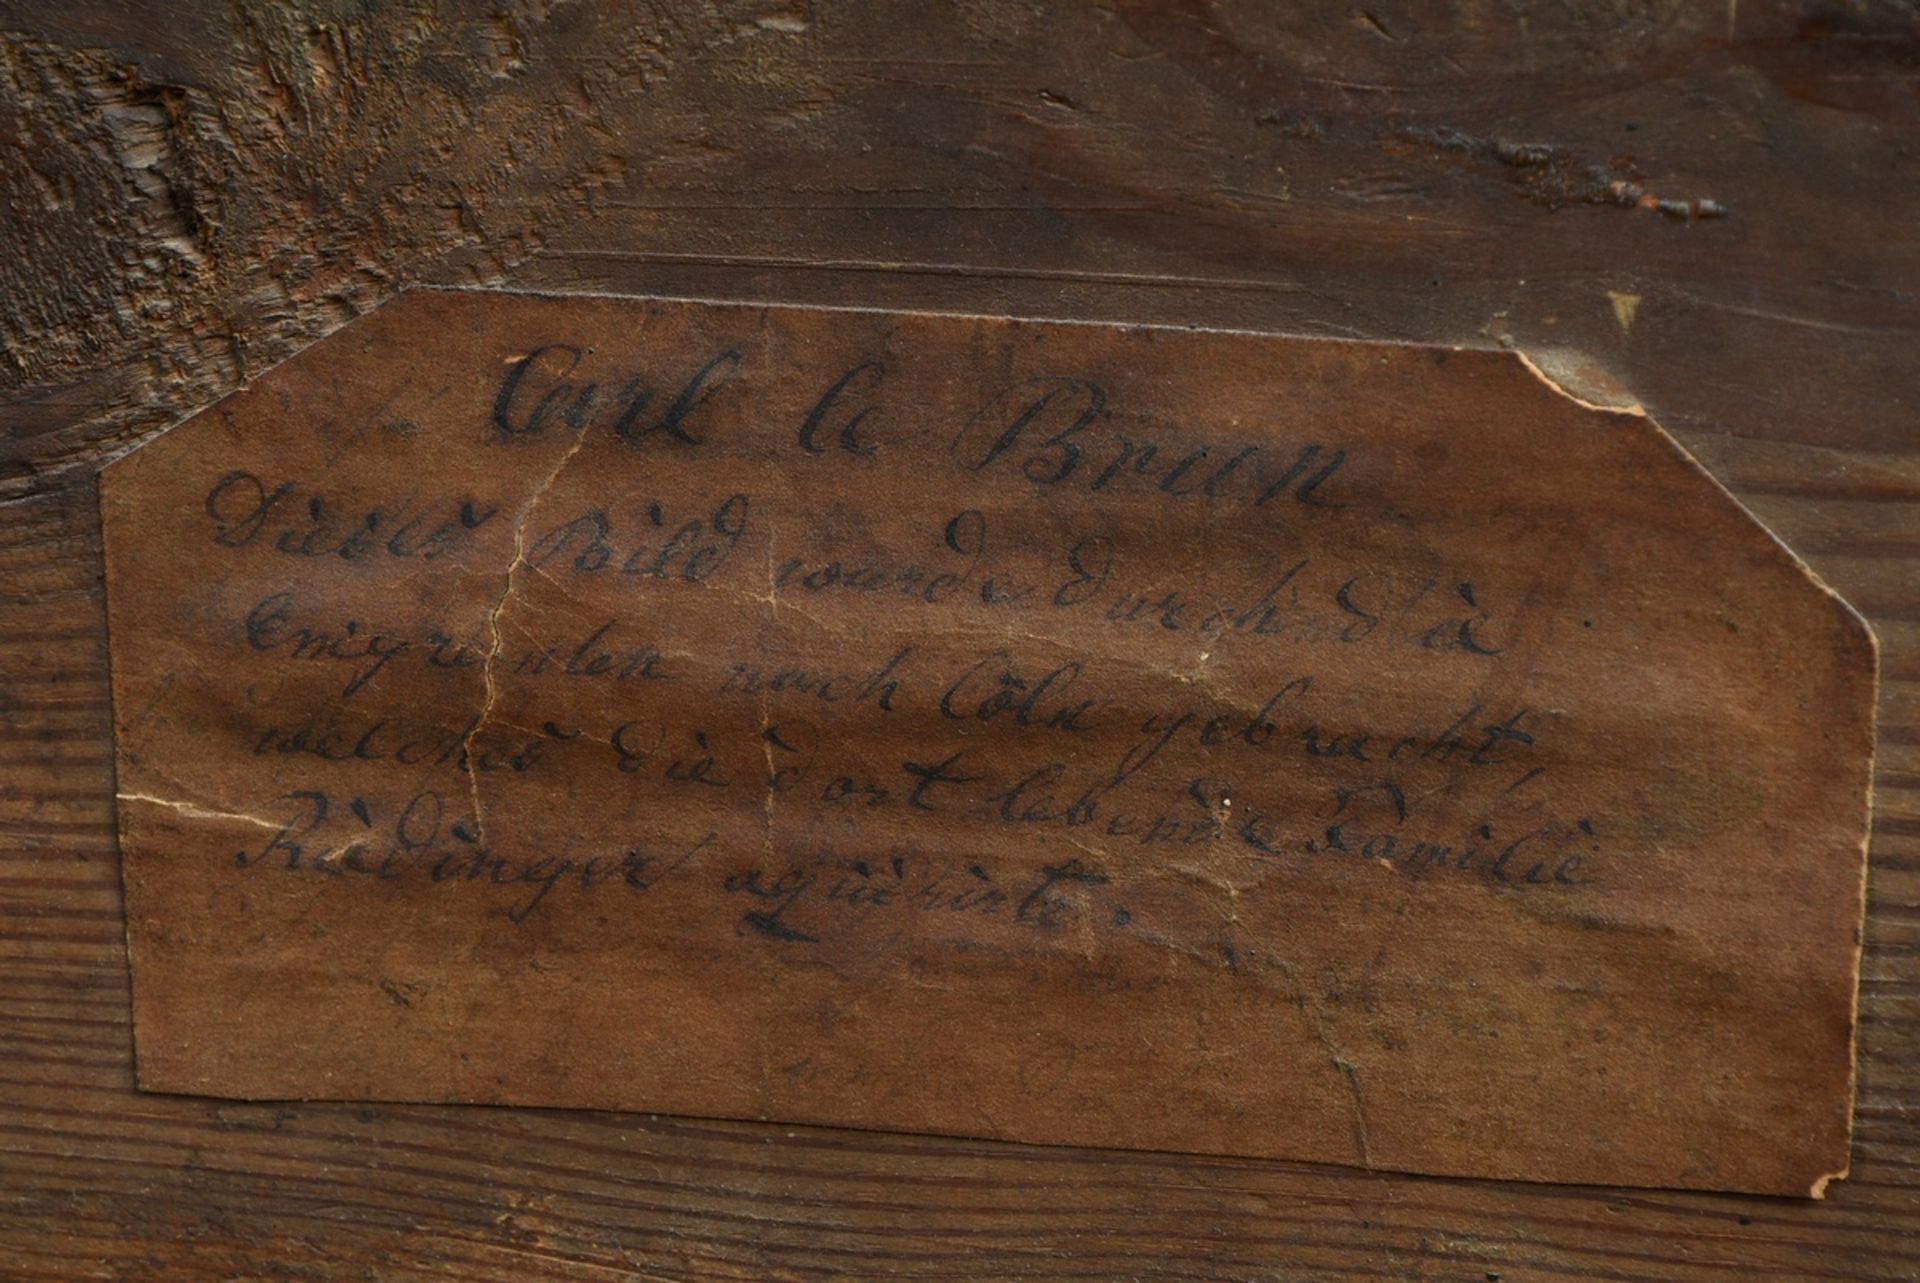 Carl le Brun
Dieses Bild wurde durch die
Emigranten nach Cöln gebracht,
welches die dort lebende Familie
Riedinger aquirirte.